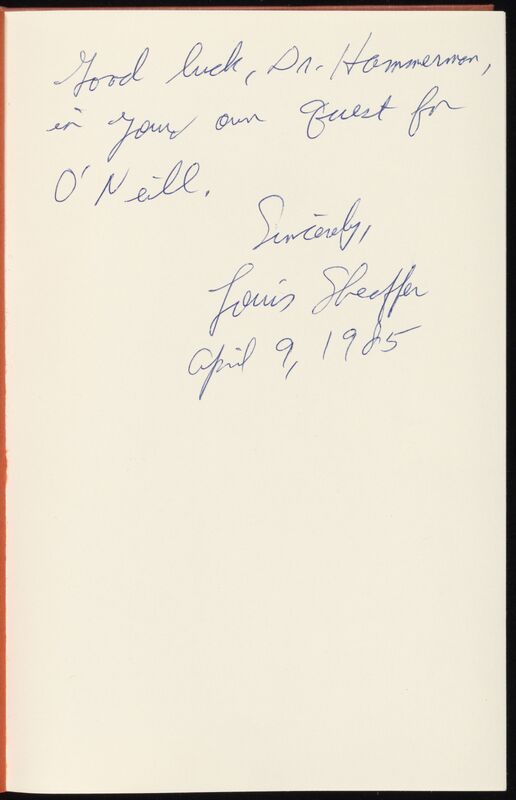 Good luck, Dr. Hammerman,
in your own quest for
O'Neill.
Sincerely,
Louis Sheaffer
April 9, 1985